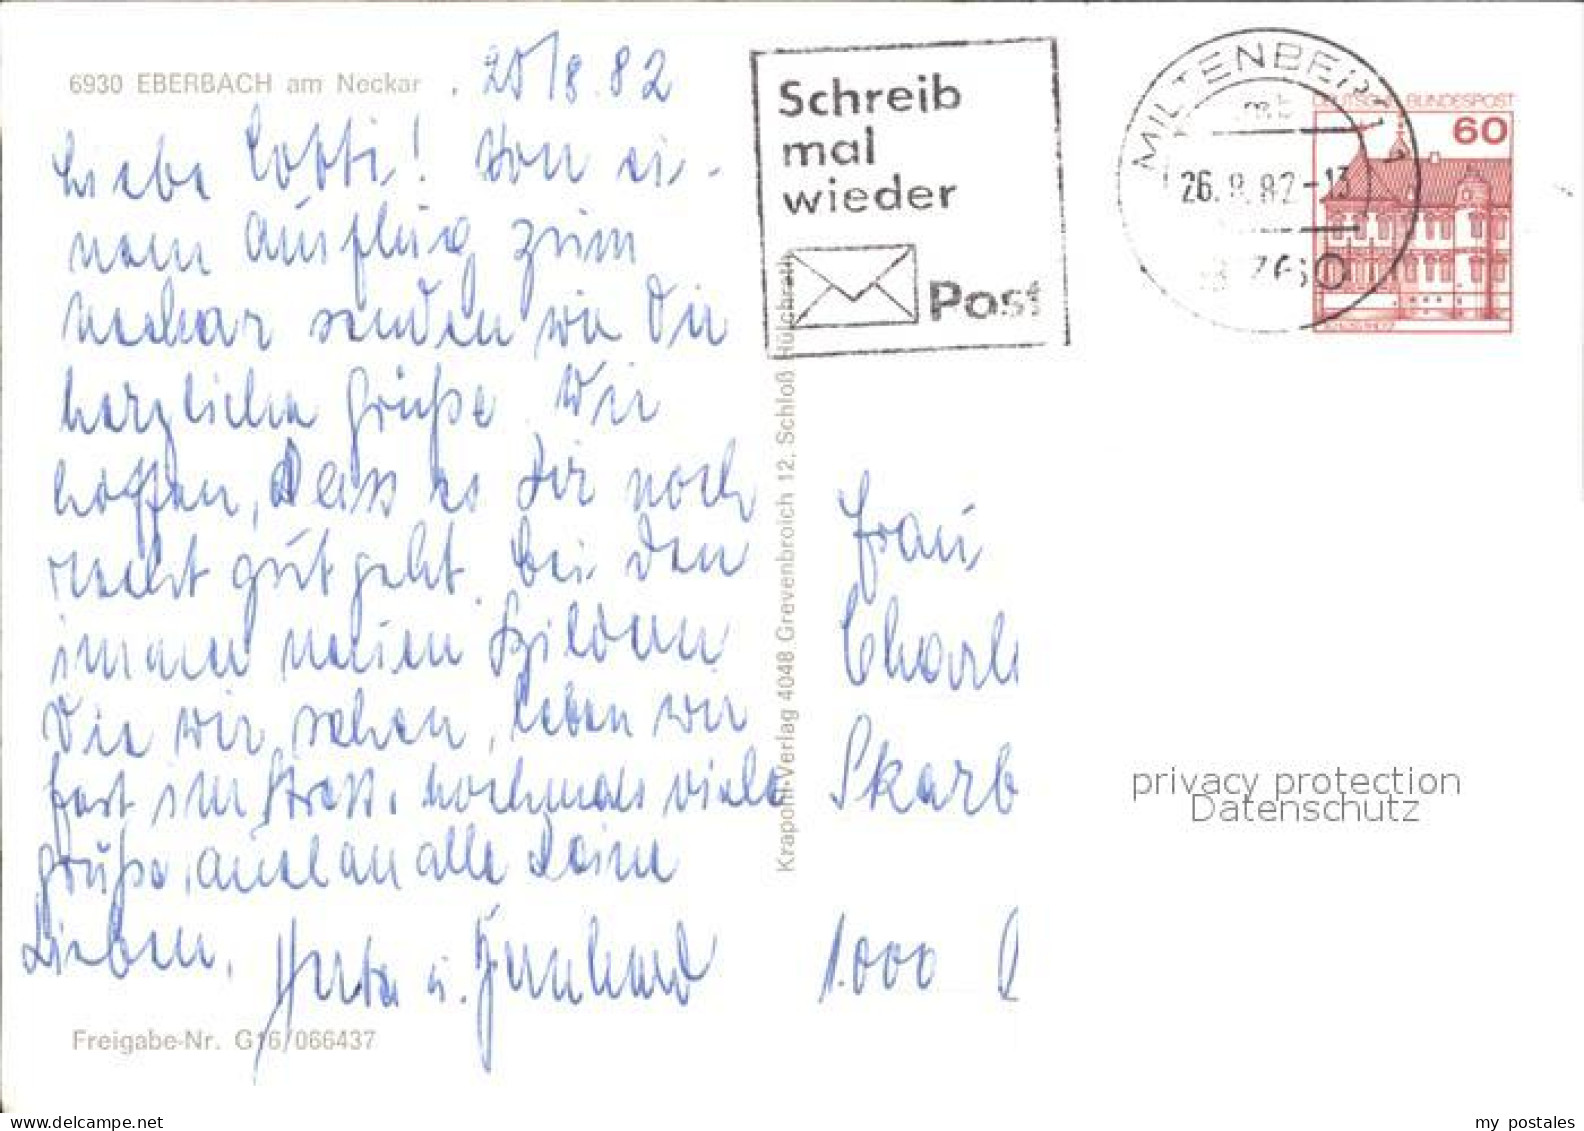 6930 EBERBACH am Neckar
25/8.82
Liebe Lotti! Von ei-
nem Ausflug zum
Neckar senden wir Dir
herzliche Grüße. Wir
hoffen, dass es Dir noch
recht gut geht. Bei den
immer neuen Bildern
Die wir sehen, leben wir
fast im Stress. Nochmals viele
Grüße, auch an alle Deine
Lieben.
Herta u. Bernhard
Freigabe-Nr. G16/066437
Krapohl-Verlag 4048 Grevenbroich 12, Schloß Hülchrath
Schreib
mal
wieder
Post
MILTENBERG 1
26.8.82-13
8760
DEUTSCHE BUNDESPOST
60
Frau
Charl
Skarb
1.000
privacy protection
Datenschutz
my postales